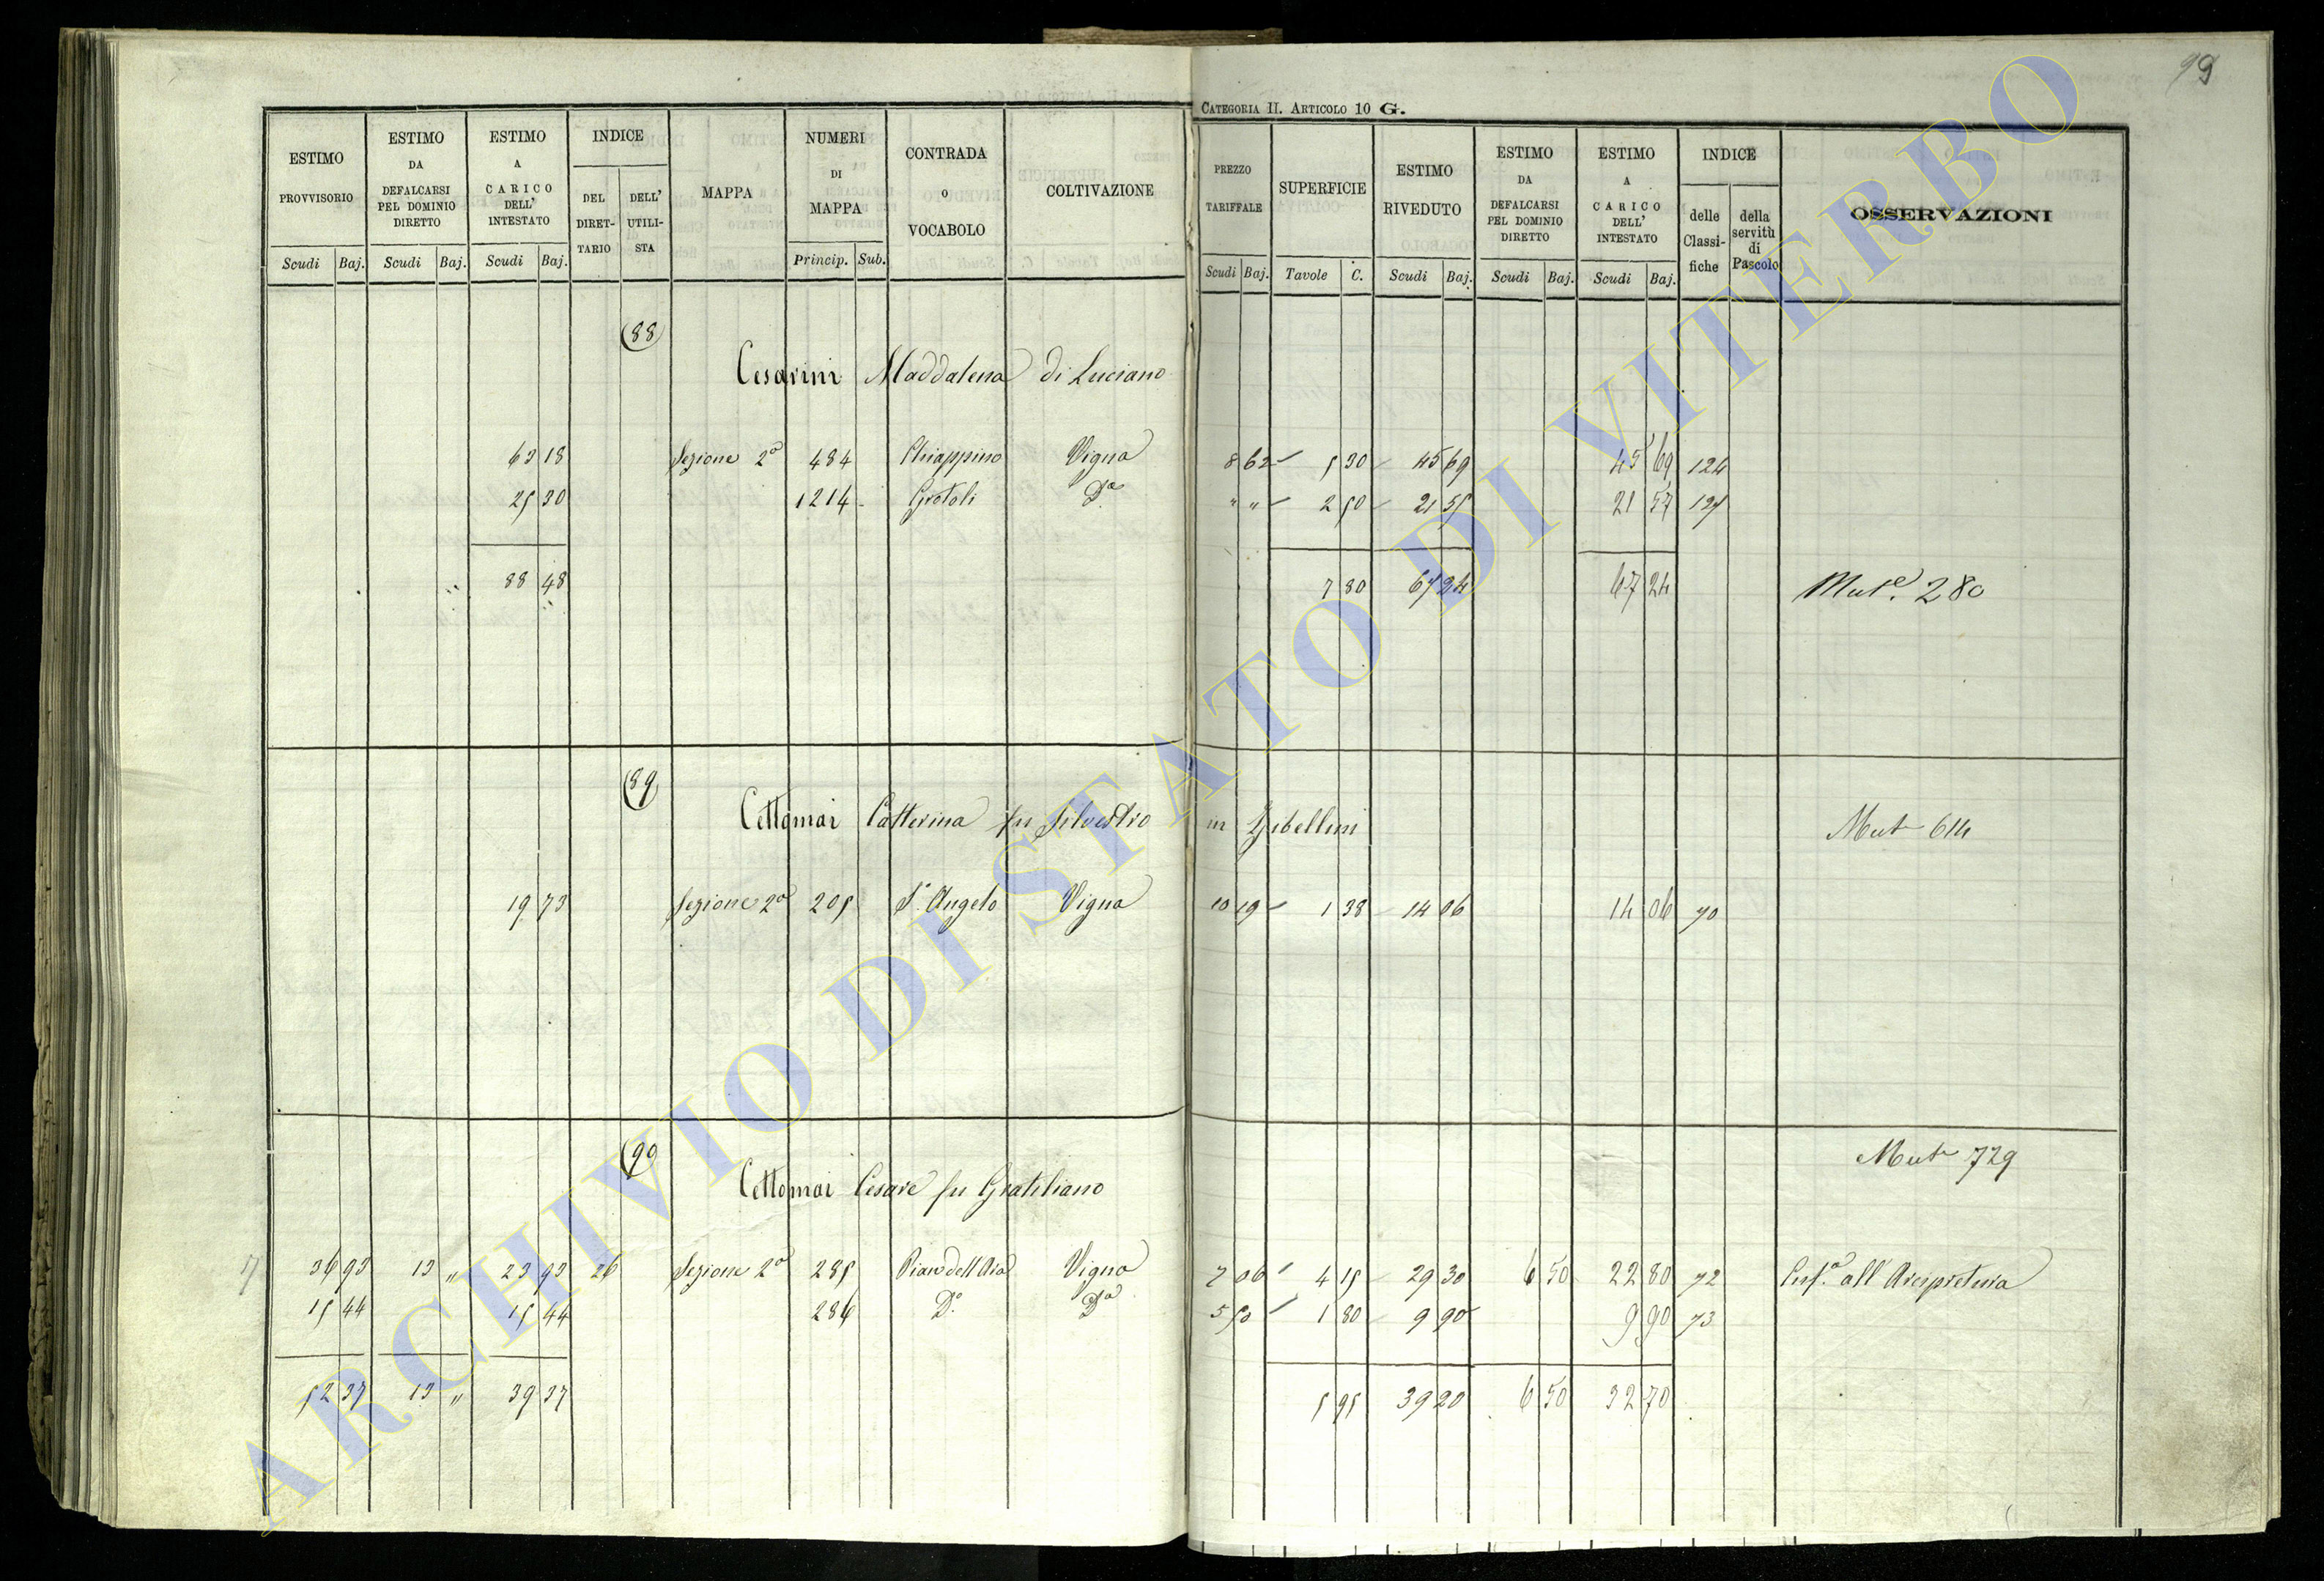 99
CATEGORIA II. ARTICOLO 10 G.
ESTIMO PROVVISORIO
ESTIMO DA DEFALCARSI PEL DOMINIO DIRETTO
ESTIMO A CARICO DELL' INTESTATO
INDICE
DEL DIRET-TARIO
DELL' UTILI-STA
MAPPA
NUMERI DI MAPPA
CONTRADA O VOCABOLO
COLTIVAZIONE
PREZZO TARIFFALE
SUPERFICIE
ESTIMO RIVEDUTO
ESTIMO DA DEFALCARSI PEL DOMINIO DIRETTO
ESTIMO A CARICO DELL' INTESTATO
INDICE
delle Classi-fiche
della servitù di Pascolo
OSSERVAZIONI
Scudi Baj. Scudi Baj. Scudi Baj. Princip. Sub. Scudi Baj. Tavole C. Scudi Baj. Scudi Baj. Scudi Baj.
88
Cesarini Maddalena di Luciano
63 18 Sezione 2a 484 Chiappino Vigna 8 62 5 30 45 69 45 69 124
25 30 1214 Grotoli Da " " 2 50 21 55 21 57 125
88 48 7 80 67 24 67 24 Mute. 280
89
Cettomai Catterina fu Silvestro in Gibellini Mut 614
19 73 Sezione 2a 205 S. Angelo Vigna 10 19 1 38 14 06 14 06 70
90
Mut 729
Cettomai Cesare fu Gratiliano
36 93 13 " 23 93 26 Sezione 2a 285 Piano dell'Aia Vigna 7 06 4 15 29 30 6 50 22 80 72 Enfa. all'Arcipretura
15 44 15 44 286 Do. Da 5 50 1 80 9 90 9 90 73
52 37 13 " 39 37 5 95 39 20 6 50 32 70
ARCHIVIO DI STATO DI VITERBO